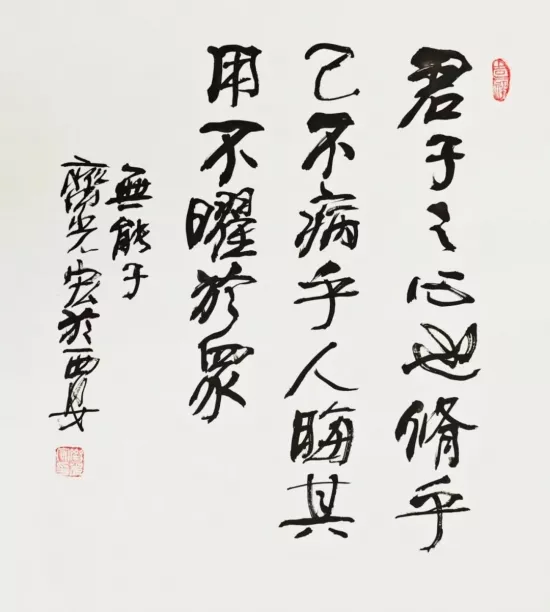 君子之心也修乎
己不病乎人晦其
用不曜於眾
無能子
齊光宏於西安